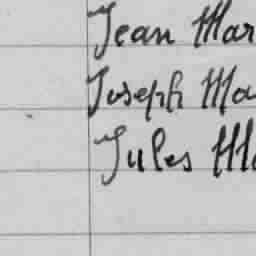 Jean Mar
Joseph Ma
Jules Ma